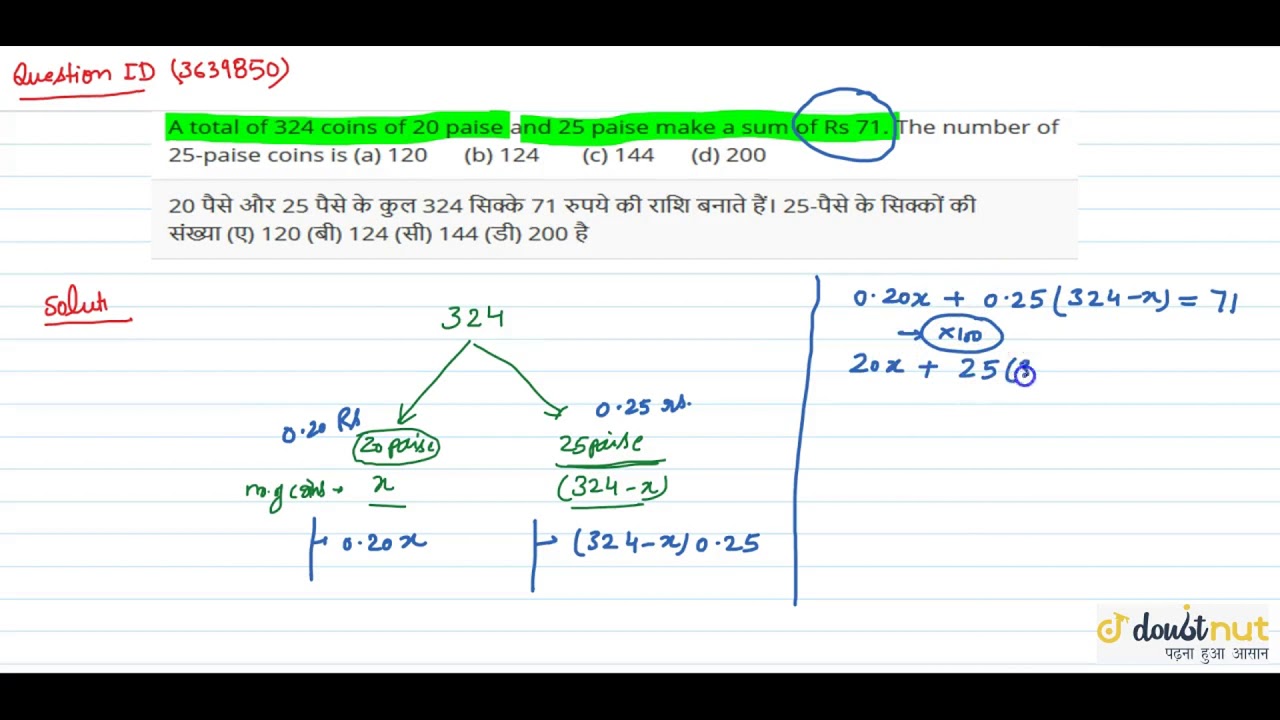 Question ID (3639850)
A total of 324 coins of 20 paise and 25 paise make a sum of Rs 71. The number of
25-paise coins is (a) 120 (b) 124 (c) 144 (d) 200
20 पैसे और 25 पैसे के कुल 324 सिक्के 71 रुपये की राशि बनाते हैं। 25-पैसे के सिक्कों की
संख्या (ए) 120 (बी) 124 (सी) 144 (डी) 200 है
Soluti
324
0.20 Rs
0.25 rs.
20 paise
25 paise
no. of coins → x
(324-x)
0.20x
(324-x) 0.25
0.20x + 0.25(324-x) = 71
→ ×100
20x + 25(3
doubtnut
पढ़ना हुआ आसान